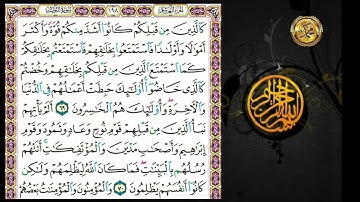 كَٱلَّذِينَ مِن قَبْلِكُمْ كَانُوٓا۟ أَشَدَّ مِنكُمْ قُوَّةً وَأَكْثَرَ
أَمْوَٰلًا وَأَوْلَٰدًا فَٱسْتَمْتَعُوا۟ بِخَلَٰقِهِمْ فَٱسْتَمْتَعْتُم بِخَلَٰقِكُمْ
كَمَا ٱسْتَمْتَعَ ٱلَّذِينَ مِن قَبْلِكُم بِخَلَٰقِهِمْ وَخُضْتُمْ
كَٱلَّذِى خَاضُوٓا۟ أُو۟لَٰٓئِكَ حَبِطَتْ أَعْمَٰلُهُمْ فِى ٱلدُّنْيَا
وَٱلْءَاخِرَةِ وَأُو۟لَٰٓئِكَ هُمُ ٱلْخَٰسِرُونَ ٦٩ أَلَمْ يَأْتِهِمْ
نَبَأُ ٱلَّذِينَ مِن قَبْلِهِمْ قَوْمِ نُوحٍ وَعَادٍ وَثَمُودَ وَقَوْمِ
إِبْرَٰهِيمَ وَأَصْحَٰبِ مَدْيَنَ وَٱلْمُؤْتَفِكَٰتِ أَتَتْهُمْ
رُسُلُهُم بِٱلْبَيِّنَٰتِ فَمَا كَانَ ٱللَّهُ لِيَظْلِمَهُمْ وَلَٰكِن
كَانُوٓا۟ أَنفُسَهُمْ يَظْلِمُونَ ٧٠ وَٱلْمُؤْمِنُونَ وَٱلْمُؤْمِنَٰتُ بَعْضُهُمْ
بسم الله الرحمن الرحيم